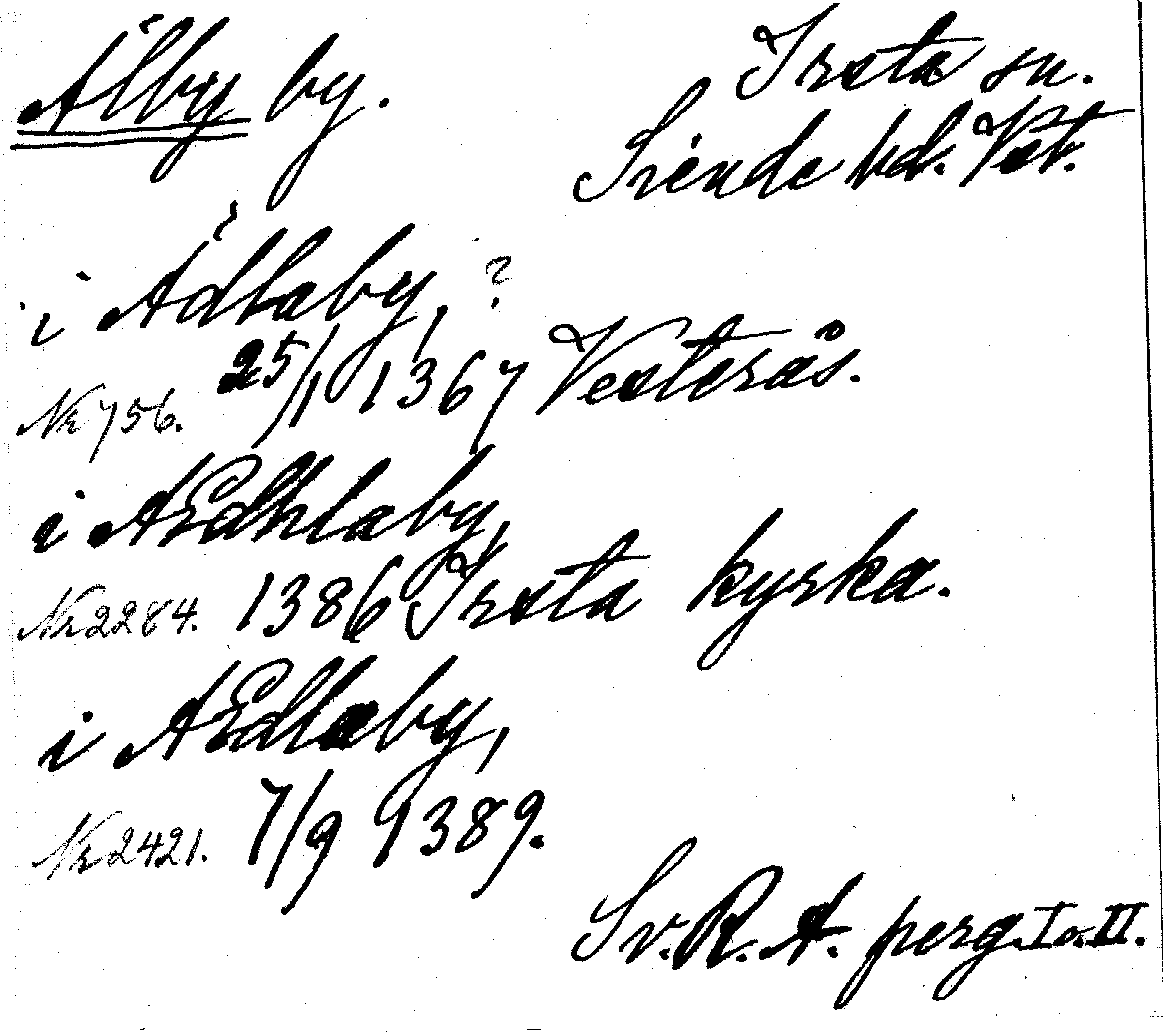 Älby by.
Irsta sn.
Siende hd. Vst.
i Ädlaby, ?
Nr 756. 25/1 1367 Vesterås.
i Ædhlaby,
Nr 2284. 1386 Irsta kyrka.
i Ædlæby,
Nr 2421. 7/9 1389.
Sv. R. A. perg. I o. II.